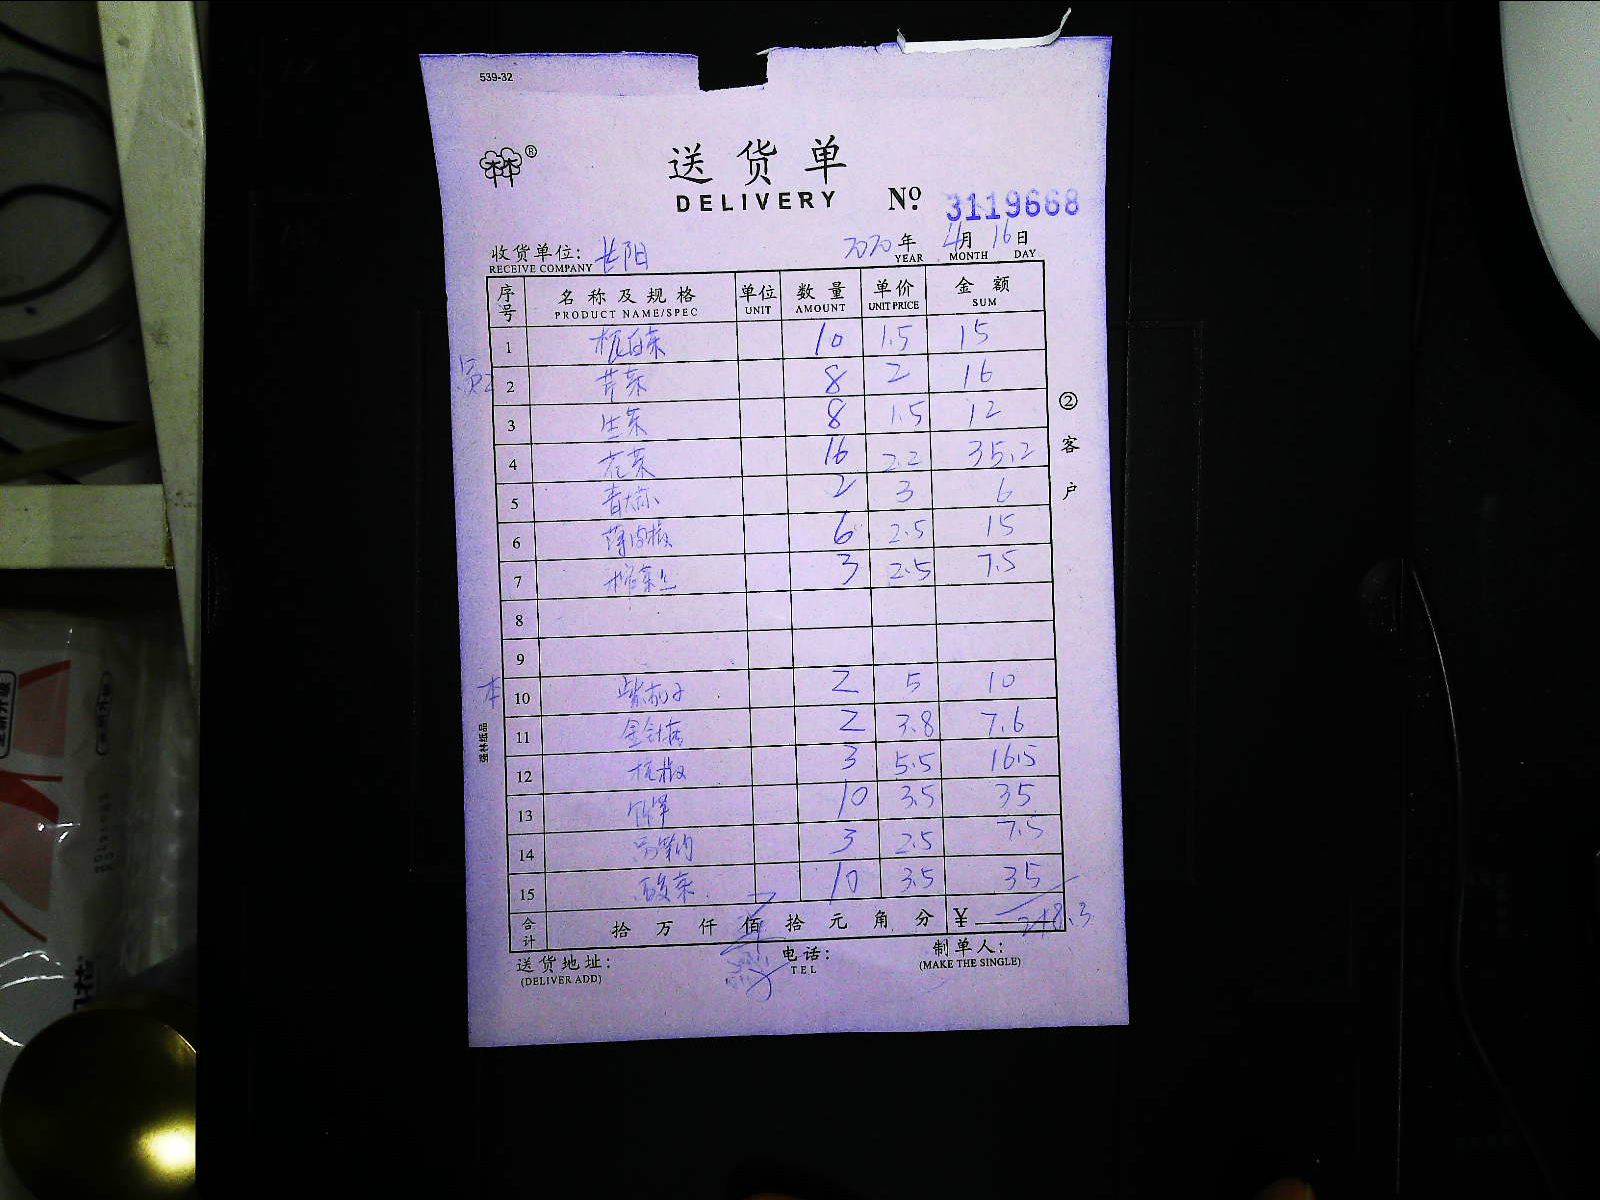 539-32
林林®
送货单
DELIVERY № 3119668
收货单位: 长阳 2020年 4月 16日
RECEIVE COMPANY YEAR MONTH DAY
序号 名称及规格 单位 数量 单价 金额
PRODUCT NAME/SPEC UNIT AMOUNT UNIT PRICE SUM
1 杭白菜 10 1.5 15
2 芹菜 8 2 16
3 生菜 8 1.5 12
4 花菜 16 2.2 35.2
5 青大椒 2 3 6
6 薄肉椒 6 2.5 15
7 榨菜丝 3 2.5 7.5
8
9
10 2 5 10
11 金针菇 2 3.8 7.6
12 杭椒 3 5.5 16.5
13 10 3.5 35
14 3 2.5 7.5
15 酸菜 10 3.5 35
合计 拾 万 仟 佰 拾 元 角 分 ¥ 218.3
送货地址: 电话: 制单人:
(DELIVER ADD) TEL (MAKE THE SINGLE)
②客户
强林纸品